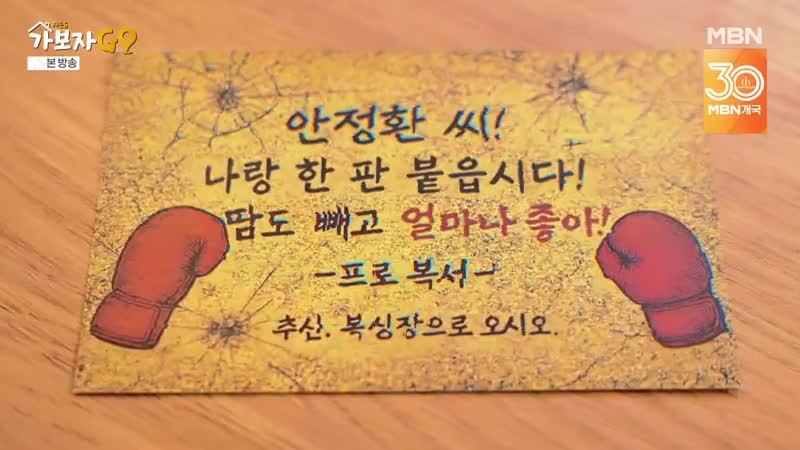 시즌5
가보자GO
본 방송
MBN
30th
MBN개국
안정환 씨!
나랑 한 판 붙읍시다!
땀도 빼고 얼마나 좋아!
-프로 복서-
추산. 복싱장으로 오시오.